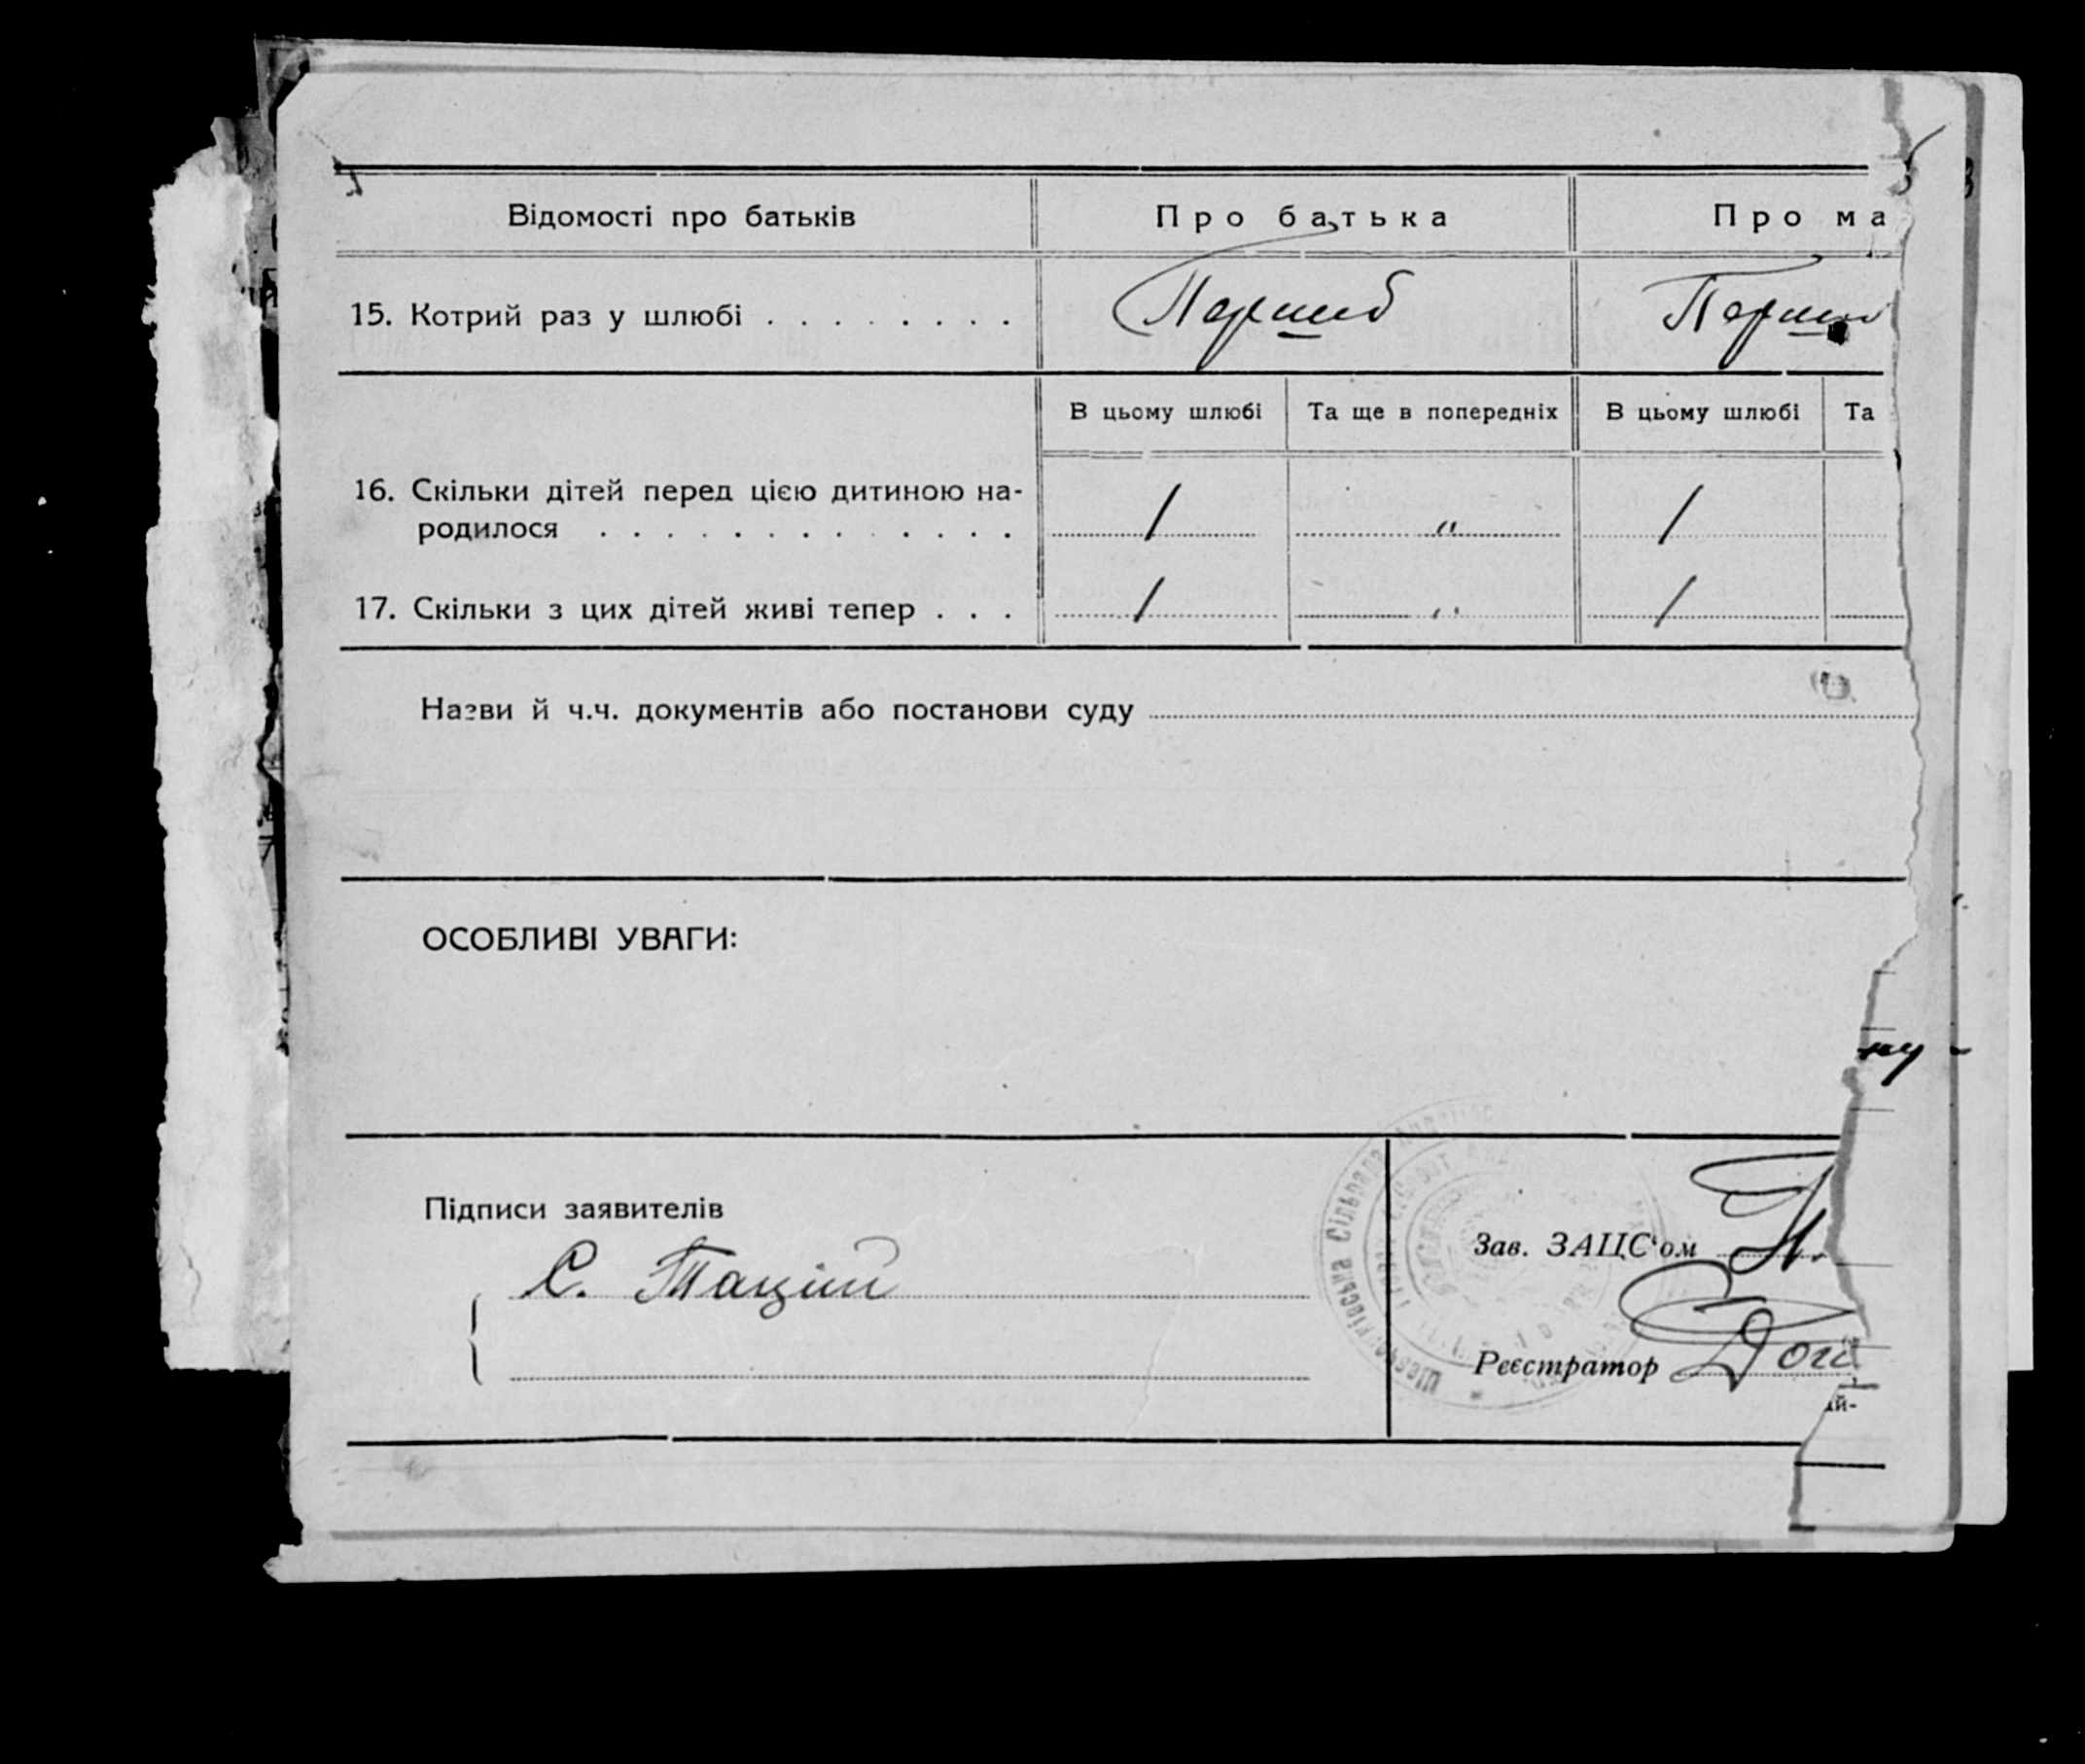 Відомості про батьків
Про батька
Про ма
15. Котрий раз у шлюбі . . . . . . . .
Перший
Перши
В цьому шлюбі
Та ще в попередніх
В цьому шлюбі
Та
16. Скільки дітей перед цією дитиною на-
родилося . . . . . . . . . . . . .
1
"
1
17. Скільки з цих дітей живі тепер . . .
1
"
1
Назви й ч.ч. документів або постанови суду
ОСОБЛИВІ УВАГИ:
Підписи заявителів
С. Тацій
Зав. ЗАЦС'ом
Реєстратор
Сільрада
ну -
ай-